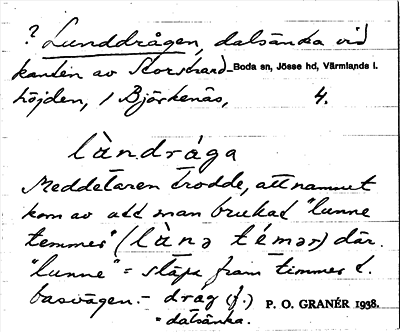 ? Lunddrågen, dalsänka vid
kanten av Storstrand-
Boda sn, Jösse hd, Värmlands l.
höjden, i Björkenäs, 4.
lùndrága
Meddelaren trodde, att namnet
kom av att man brukat "lunne
temmer" (lùnə témər) där.
"lunne" = släpa fram timmer t.
basvägen. - drag (f.)
= dalsänka.
P. O. GRANÉR 1938.